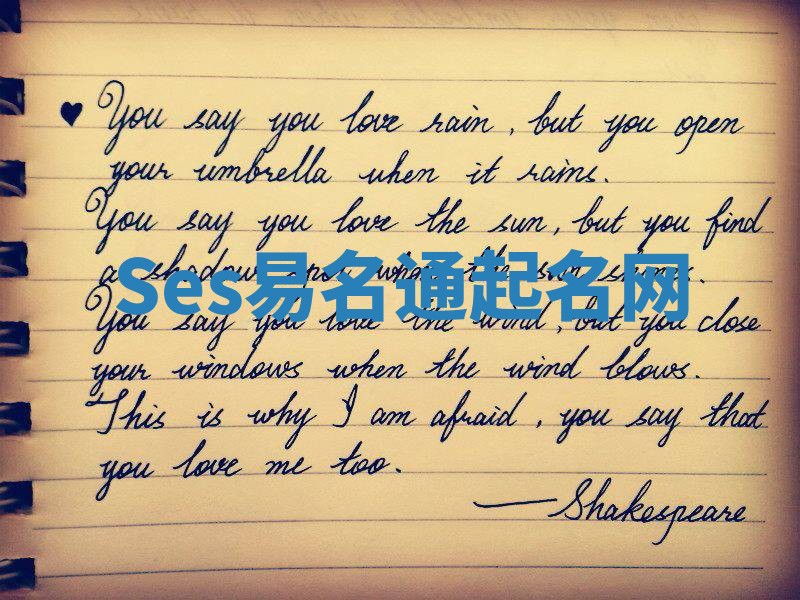 ♥ You say you love rain, but you open
your umbrella when it rains.
You say you love the sun, but you find
a shadow spot when the sun shines.
Ses易名通起名网
You say you love the wind, but you close
your windows when the wind blows.
This is why I am afraid, you say that
you love me too.
—Shakespeare